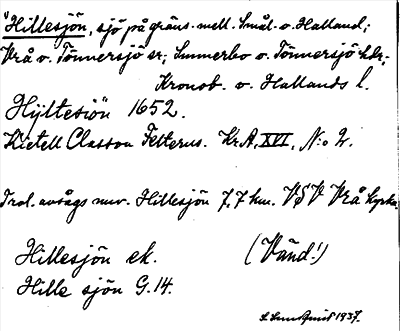 "Hillesjön, sjö på gräns. mell. Smål. o. Halland;
Vrå o. Tönnersjö sr; Sunnerbo o. Tönnersjö hdr;
Kronob. o. Hallands l.
Hyltesiön 1652.
Kietell Classon Felterus. Kr.A. XVI, N:o 2.
Trol. avsågs nuv. Hillesjön 7,7 km. VSV Vrå kyrka.
Hillesjön ek. (Vänd!)
Hille sjön G. 14.
1937.